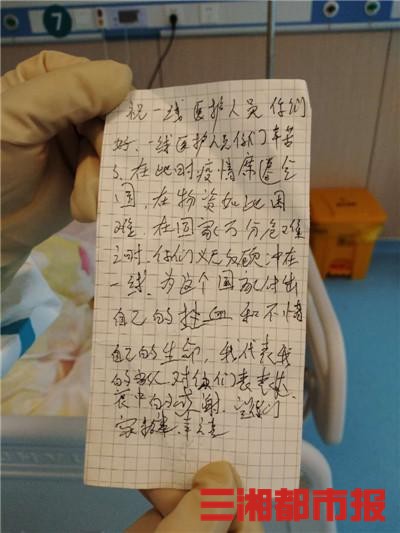 7
祝一线医护人员你们
好,一线医护人员你们辛苦
了,在此时疫情席卷全
国,在物资如此困
难,在国家万分危难
之时,你们义无反顾冲在
一线,为这个国家付出
自己的 和不惜
自己的生命,我代表我
的家人对你们表表达
衷中的感谢,
家
三湘都市报